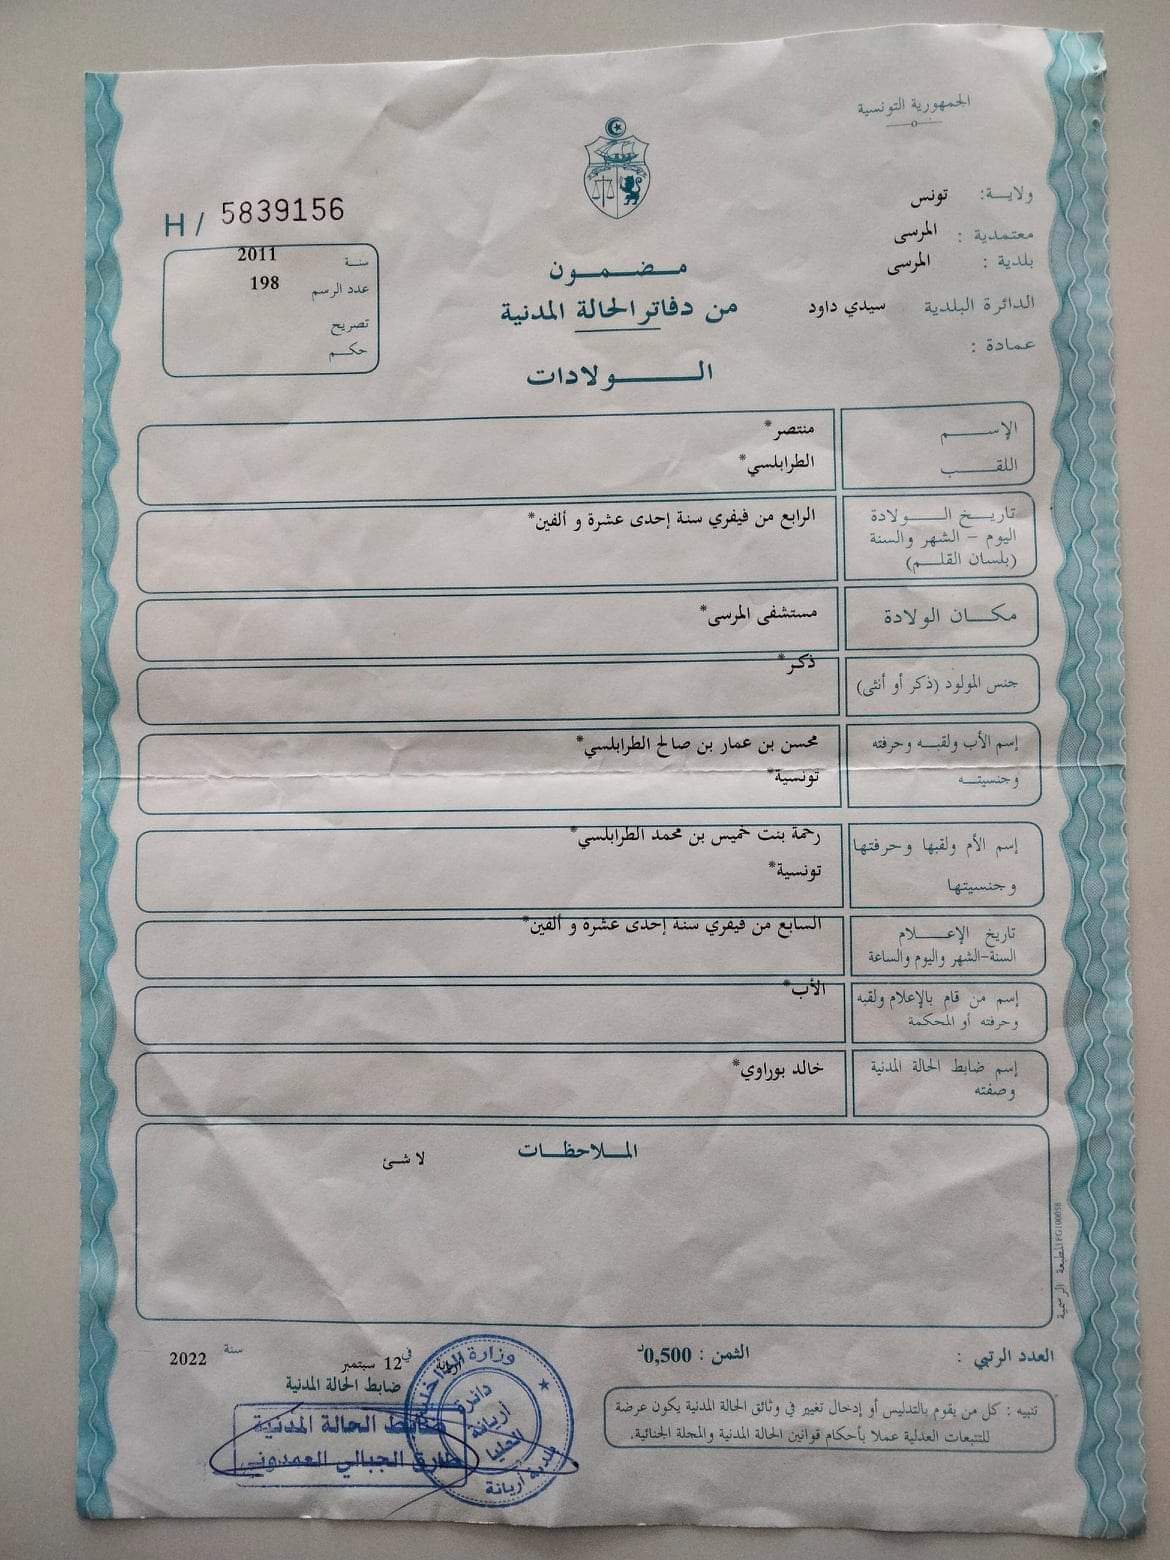 الجمهورية التونسية
ولاية: تونس
معتمدية : المرسى
بلدية : المرسى
الدائرة البلدية سيدي داود
عمادة :
H / 5839156
سنة 2011
عدد الرسم 198
تصريح
حكم
مضمون
من دفاتر الحالة المدنية
الولادات
الإسم منتصر*
اللقب الطرابلسي*
تاريخ الولادة الرابع من فيفري سنة إحدى عشرة و ألفين*
اليوم - الشهر والسنة
(بلسان القلم)
مكان الولادة مستشفى المرسى*
جنس المولود (ذكر أو أنثى) ذكر*
إسم الأب ولقبه وحرفته محسن بن عمار بن صالح الطرابلسي*
وجنسيته تونسية*
إسم الأم ولقبها وحرفتها رحمة بنت خميس بن محمد الطرابلسي*
وجنسيتها تونسية*
تاريخ الإعلام السابع من فيفري سنة إحدى عشرة و ألفين*
السنة-الشهر واليوم والساعة
إسم من قام بالإعلام ولقبه الأب*
وحرفته أو المحكمة
إسم ضابط الحالة المدنية خالد بوراوي*
وصفته
الملاحظات
لا شئ
المطبعة الرسمية FG100058
العدد الرتبي :
الثمن : 0,500د
في 12 سبتمبر سنة 2022
ضابط الحالة المدنية
تنبيه : كل من يقوم بالتدليس أو إدخال تغيير في وثائق الحالة المدنية يكون عرضة
للتتبعات العدلية عملا بأحكام قوانين الحالة المدنية والمجلة الجنائية.
ضابط الحالة المدنية
طارق الجبالي العمدوني
وزارة الداخلية
دائرة
أريانة
العليا
بلدية أريانة